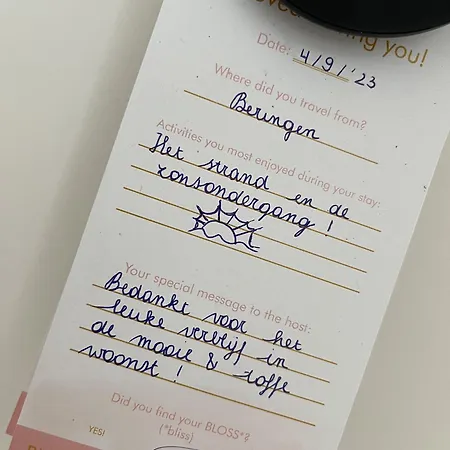 you!
Date: 4/9/'23
Where did you travel from?
Beringen
Activities you most enjoyed during your stay:
Het strand en de
zonsondergang!
Your special message to the host:
Bedankt voor het
leuke verblijf in
de mooie & toffe
woonst!
Did you find your BLOSS*?
(*bliss)
YES!